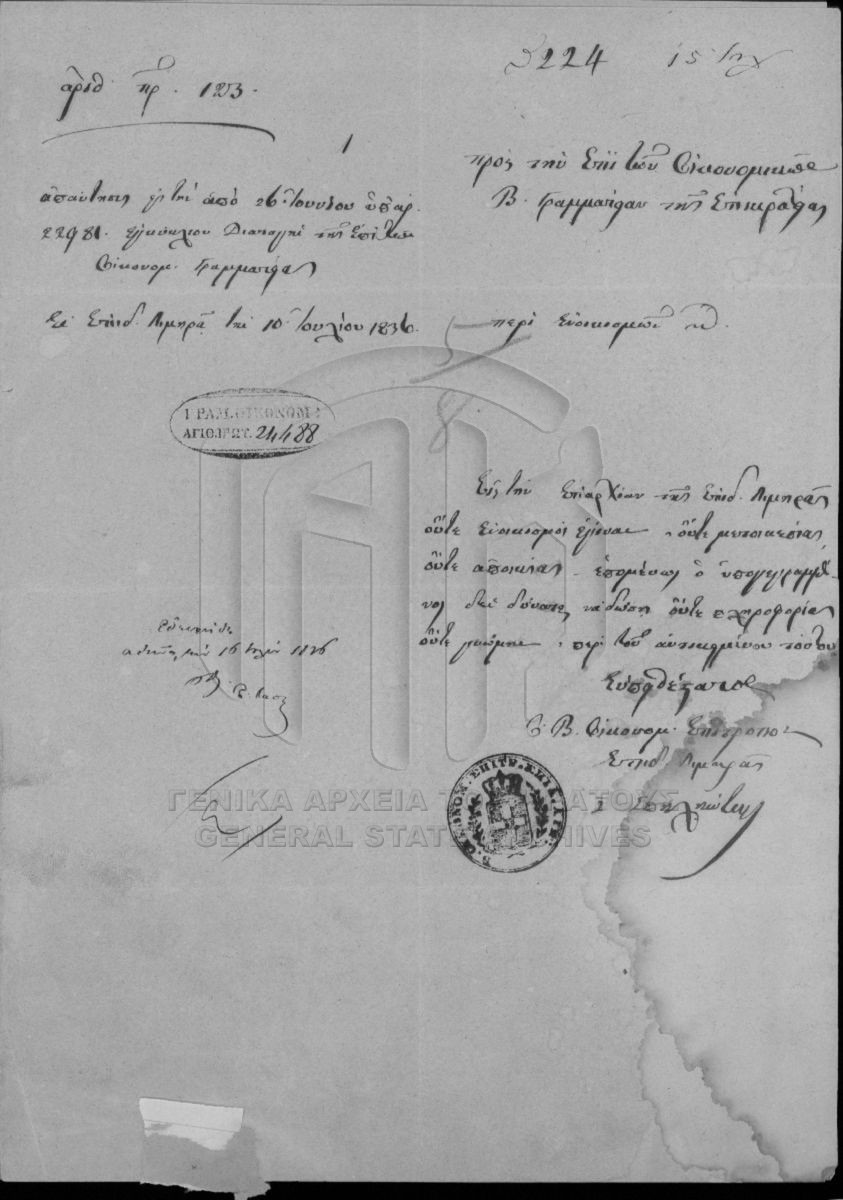 3224 15 Ιουλ
ἀριθ. πρ. 123.
1
πρὸς τὴν Ἐπὶ τῶν Οἰκονομικῶν
Β. Γραμματείαν τῆς Ἐπικρατείας
ἀπάντησις εἰς τὴν ἀπὸ 26 Ἰουνίου ὑπ' ἀρ.
22981 ἐγκύκλιον Διαταγὴν τῆς Ἐπὶ τῶν
Οἰκονομ. Γραμματείας
Ἐν Ἐπιδ. Λιμηρᾷ τὴν 10 Ἰουλίου 1836.
περὶ Συνοικισμῶν κλ.
ΓΡΑΜ. ΟΙΚΟΝΟΜ:
ΑΡΙΘ. ΠΡΩΤ. 24488
Εἰς τὴν Ἐπαρχίαν τῆς Ἐπιδ. Λιμηρᾶς
οὔτε Συνοικισμοὶ ἔγιναν, οὔτε μετοικεσίαι,
οὔτε ἀποικίαι. ἑπομένως ὁ ὑπογεγραμμέ-
νος δὲν δύναται νὰ δώσῃ οὔτε πληροφορίας
οὔτε γνώμην, περὶ τοῦ ἀντικειμένου τούτου
Εὐπειθέστατος
Ὁ Β. Οἰκονομ. Ἐπίτροπος
Ἐπιδ. Λιμηρᾶς
ἀθῆναι τὴν 16 Ἰουλίου 1836
ΓΕΝΙΚΑ ΑΡΧΕΙΑ ΤΟΥ ΚΡΑΤΟΥΣ
GENERAL STATE ARCHIVES